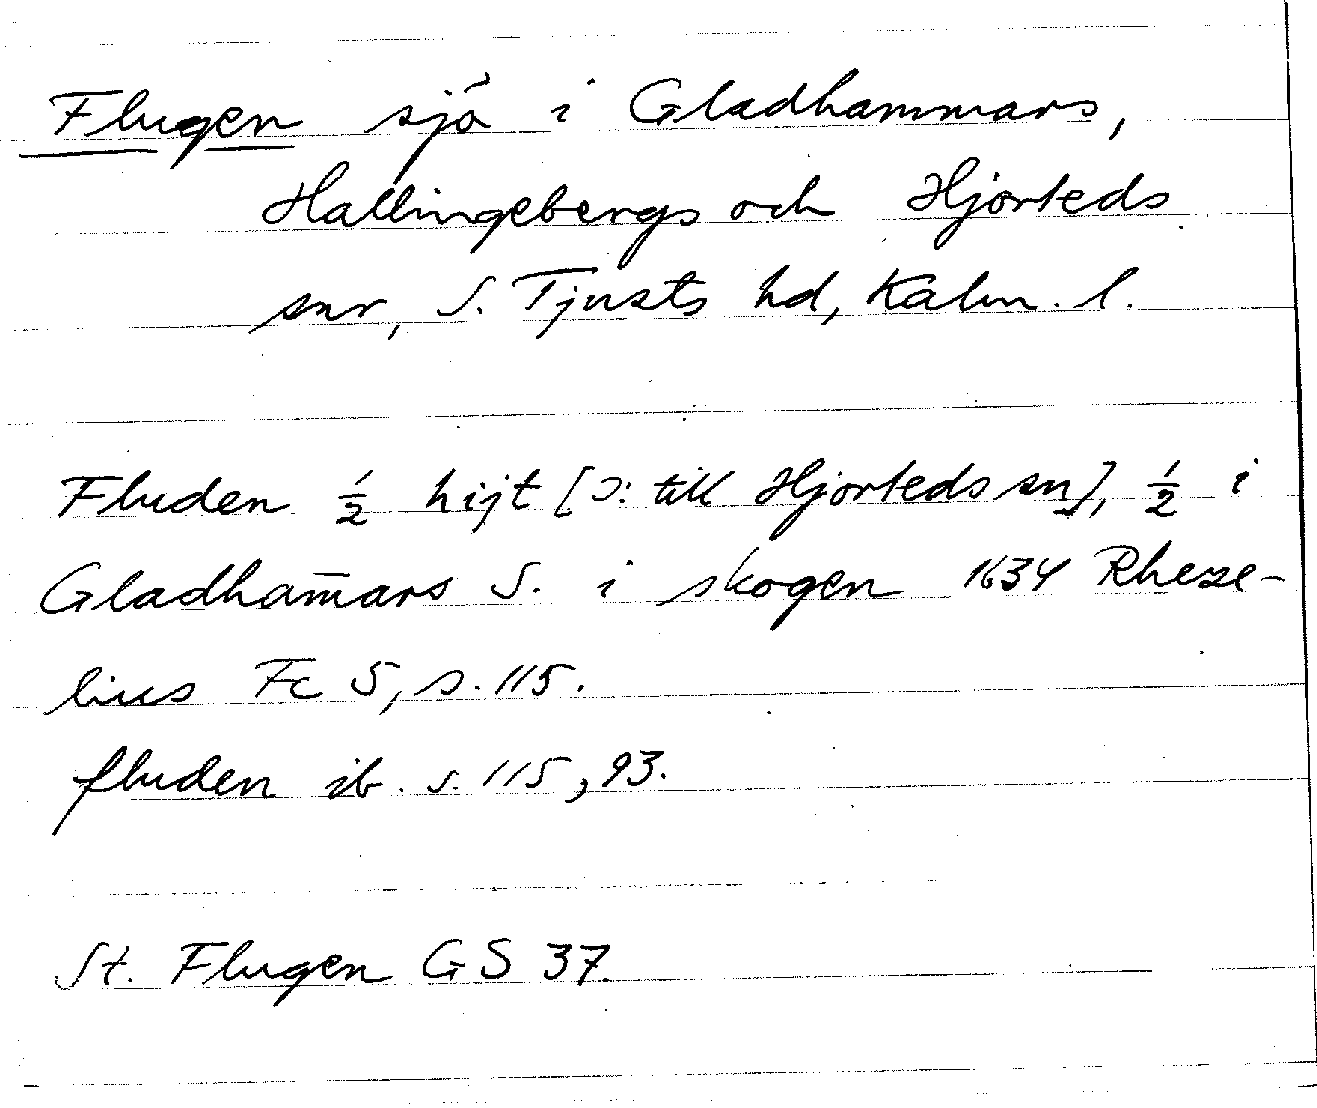 Flugen sjö i Gladhammars,
Hallingebergs och Hjorteds
snr, S. Tjusts hd, Kalm. l.
Fluden ½ hijt [ɔ: till Hjorteds sn], ½ i
Gladham̅ars S. i skogen 1634 Rheze-
lius Fc 5, s. 115.
fluden ib. s. 115, 93.
St. Flugen GS 37.